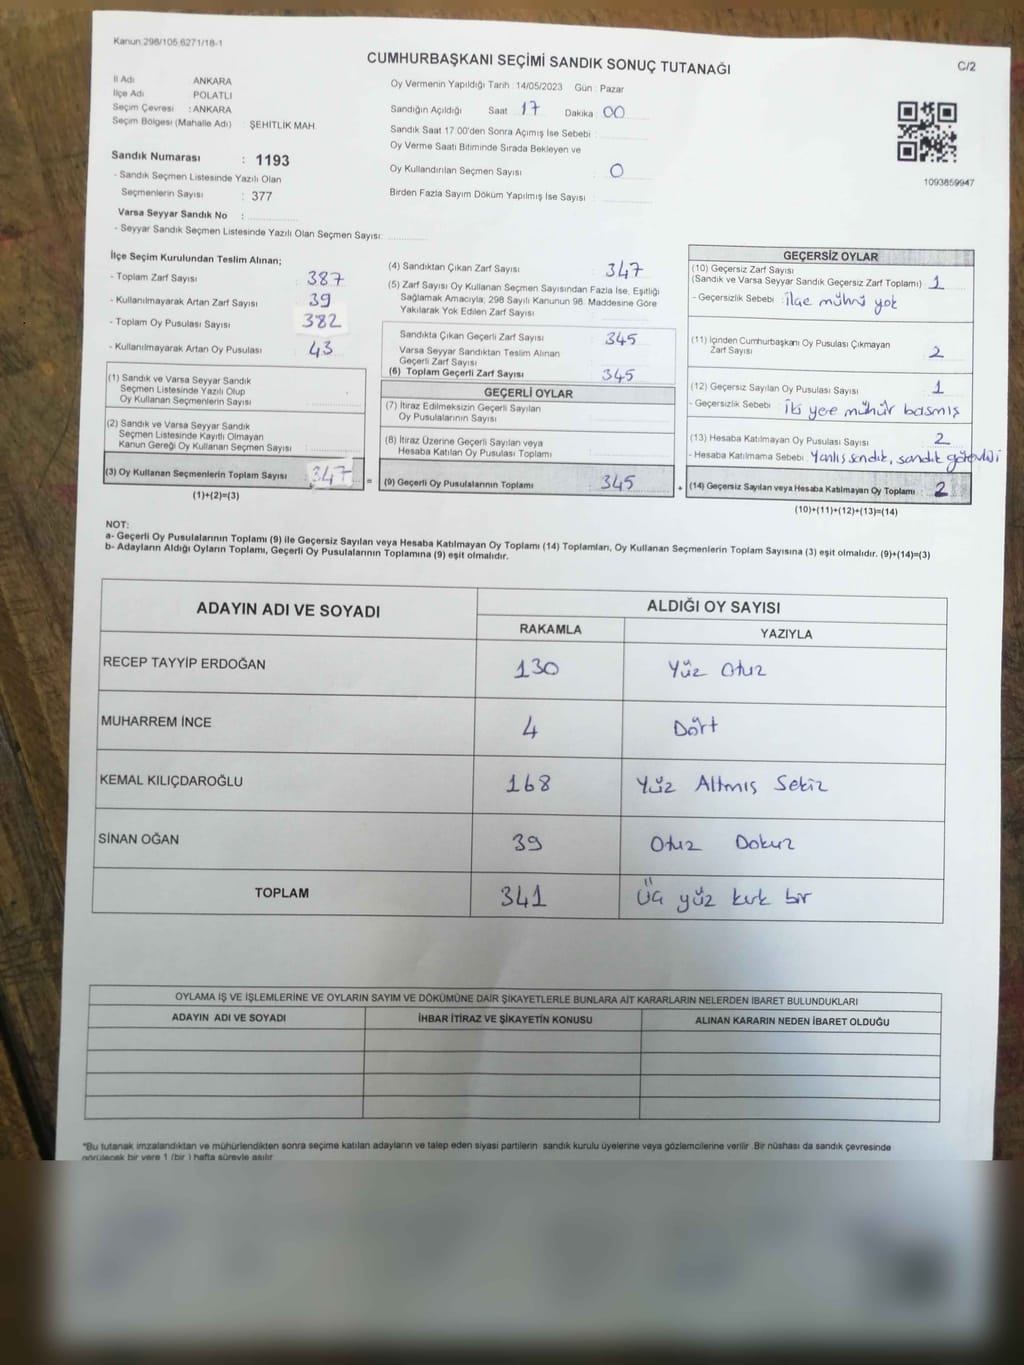 Kanun:298/105,6271/18-1
CUMHURBAŞKANI SEÇİMİ SANDIK SONUÇ TUTANAĞI
C/2
İl Adı ANKARA
İlçe Adı POLATLI
Seçim Çevresi : ANKARA
Seçim Bölgesi (Mahalle Adı) : ŞEHİTLİK MAH.
Oy Vermenin Yapıldığı Tarih : 14/05/2023 Gün : Pazar
Sandığın Açıldığı Saat 17 Dakika 00
Sandık Saat 17:00'den Sonra Açımış İse Sebebi :
Oy Verme Saati Bitiminde Sırada Bekleyen ve
Oy Kullandırılan Seçmen Sayısı : 0
Birden Fazla Sayım Döküm Yapılmış İse Sayısı :
1093859947
Sandık Numarası : 1193
- Sandık Seçmen Listesinde Yazılı Olan
Seçmenlerin Sayısı : 377
Varsa Seyyar Sandık No :
- Seyyar Sandık Seçmen Listesinde Yazılı Olan Seçmen Sayısı:
İlçe Seçim Kurulundan Teslim Alınan;
- Toplam Zarf Sayısı : 387
- Kullanılmayarak Artan Zarf Sayısı : 39
- Toplam Oy Pusulası Sayısı : 382
- Kullanılmayarak Artan Oy Pusulası : 43
(1) Sandık ve Varsa Seyyar Sandık
Seçmen Listesinde Yazılı Olup
Oy Kullanan Seçmenlerin Sayısı :
(2) Sandık ve Varsa Seyyar Sandık
Seçmen Listesinde Kayıtlı Olmayan
Kanun Gereği Oy Kullanan Seçmen Sayısı :
(3) Oy Kullanan Seçmenlerin Toplam Sayısı : 347
(1)+(2)=(3)
(4) Sandıktan Çıkan Zarf Sayısı : 347
(5) Zarf Sayısı Oy Kullanan Seçmen Sayısından Fazla İse, Eşitliği
Sağlamak Amacıyla; 298 Sayılı Kanunun 98. Maddesine Göre
Yakılarak Yok Edilen Zarf Sayısı :
Sandıkta Çıkan Geçerli Zarf Sayısı : 345
Varsa Seyyar Sandıktan Teslim Alınan
Geçerli Zarf Sayısı :
(6) Toplam Geçerli Zarf Sayısı : 345
GEÇERLİ OYLAR
(7) İtiraz Edilmeksizin Geçerli Sayılan
Oy Pusulalarının Sayısı :
(8) İtiraz Üzerine Geçerli Sayılan veya
Hesaba Katılan Oy Pusulası Toplamı :
= (9) Geçerli Oy Pusulalarının Toplamı : 345
GEÇERSİZ OYLAR
(10) Geçersiz Zarf Sayısı
(Sandık ve Varsa Seyyar Sandık Geçersiz Zarf Toplamı) : 1
- Geçersizlik Sebebi : ilçe mührü yok
(11) İçinden Cumhurbaşkanı Oy Pusulası Çıkmayan
Zarf Sayısı : 2
(12) Geçersiz Sayılan Oy Pusulası Sayısı : 1
- Geçersizlik Sebebi : iki yere mühür basmış
(13) Hesaba Katılmayan Oy Pusulası Sayısı : 2
- Hesaba Katılmama Sebebi : Yanlış sandık, sandık görevlisi
+ (14) Geçersiz Sayılan veya Hesaba Katılmayan Oy Toplamı : 2
(10)+(11)+(12)+(13)=(14)
NOT:
a- Geçerli Oy Pusulasının Toplamı (9) ile Geçersiz Sayılan veya Hesaba Katılmayan Oy Toplamı (14) Toplamları, Oy Kullanan Seçmenlerin Toplam Sayısına (3) eşit olmalıdır. (9)+(14)=(3)
b- Adayların Aldığı Oyların Toplamı, Geçerli Oy Pusulalarının Toplamına (9) eşit olmalıdır.
ADAYIN ADI VE SOYADI ALDIĞI OY SAYISI
RAKAMLA YAZIYLA
RECEP TAYYİP ERDOĞAN 130 Yüz Otuz
MUHARREM İNCE 4 Dört
KEMAL KILIÇDAROĞLU 168 Yüz Altmış Sekiz
SİNAN OĞAN 39 Otuz Dokuz
TOPLAM 341 Üç yüz kırk bir
OYLAMA İŞ VE İŞLEMLERİNE VE OYLARIN SAYIM VE DÖKÜMÜNE DAİR ŞİKAYETLERLE BUNLARA AİT KARARLARIN NELERDEN İBARET BULUNDUKLARI
ADAYIN ADI VE SOYADI İHBAR İTİRAZ VE ŞİKAYETİN KONUSU ALINAN KARARIN NEDEN İBARET OLDUĞU
*Bu tutanak imzalandıktan ve mühürlendikten sonra seçime katılan adayların ve talep eden siyasi partilerin sandık kurulu üyelerine veya gözlemcilerine verilir .Bir nüshası da sandık çevresinde
görülecek bir yere 1 (bir ) hafta süreyle asılır